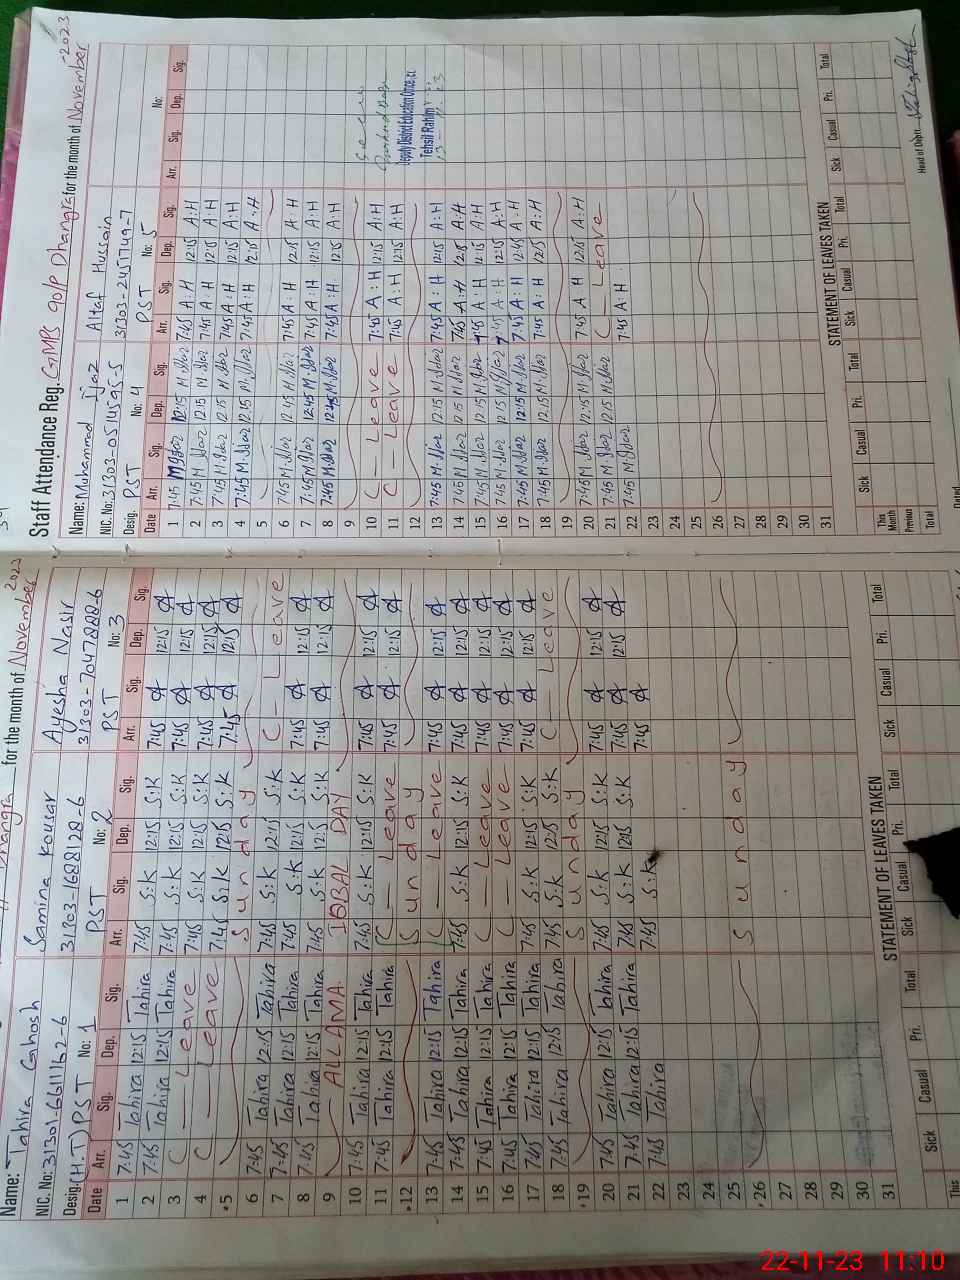 for the month of November 2023
Name: Tahira Ghosh Samina Kousar Ayesha Nasir
NIC. No: 31301-6611162-6 31303-1688128-6 31303-7047888-6
Desig: (H.T) PST No: 1 PST No: 2 PST No: 3
Date Arr. Sig. Dep. Sig. Arr. Sig. Dep. Sig. Arr. Sig. Dep. Sig.
1 7:45 Tahira 12:15 Tahira 7:45 S:K 12:15 S:K 7:45 12:15
2 7:45 Tahira 12:15 Tahira 7:45 S:K 12:15 S:K 7:45 12:15
3 C — Leave 7:45 S:K 12:15 S:K 7:45 12:15
4 C — Leave 7:45 S:K 12:15 S:K 7:45 12:15
5 Sunday
6 7:45 Tahira 12:15 Tahira 7:45 S:K 12:15 S:K C — Leave
7 7:45 Tahira 12:15 Tahira 7:45 S:K 12:15 S:K 7:45 12:15
8 7:45 Tahira 12:15 Tahira 7:45 S:K 12:15 S:K 7:45 12:15
9 ALLAMA IQBAL DAY
10 7:45 Tahira 12:15 Tahira 7:45 S:K 12:15 S:K 7:45 12:15
11 7:45 Tahira 12:15 Tahira C — Leave 7:45 12:15
12 Sunday
13 7:45 Tahira 12:15 Tahira C — Leave 7:45 12:15
14 7:45 Tahira 12:15 Tahira 7:45 S:K 12:15 S:K 7:45 12:15
15 7:45 Tahira 12:15 Tahira C — Leave 7:45 12:15
16 7:45 Tahira 12:15 Tahira C — Leave 7:45 12:15
17 7:45 Tahira 12:15 Tahira 7:45 S:K 12:15 S:K 7:45 12:15
18 7:45 Tahira 12:15 Tahira 7:45 S:K 12:15 S:K C — Leave
19 Sunday
20 7:45 Tahira 12:15 Tahira 7:45 S:K 12:15 S:K 7:45 12:15
21 7:45 Tahira 12:15 Tahira 7:45 S:K 12:15 S:K 7:45 12:15
22 7:45 Tahira 7:45 S:K 7:45
23
24
25
26 Sunday
27
28
29
30
31
STATEMENT OF LEAVES TAKEN
Sick Casual Pri. Total Sick Casual Pri. Total Sick Casual Pri. Total
This
Staff Attendance Reg. GMPS 90/P Dhangra for the month of November -2023
Name: Muhammad Ijaz Altaf Hussain
NIC. No: 31303-0514595-5 31303-2457749-7
Desig. PST No: 4 PST No: 5 No:
Date Arr. Sig. Dep. Sig. Arr. Sig. Dep. Sig. Arr. Sig. Dep. Sig.
1 7:45 M.IJaz 12:15 M.IJaz 7:45 A:H 12:15 A:H
2 7:45 M.IJaz 12:15 M.IJaz 7:45 A:H 12:15 A:H
3 7:45 M.IJaz 12:15 M.IJaz 7:45 A:H 12:15 A:H
4 7:45 M.IJaz 12:15 M.IJaz 7:45 A:H 12:15 A:H
5
6 7:45 M.IJaz 12:45 M.IJaz 7:45 A:H 12:15 A:H
7 7:45 M.IJaz 12:45 M.IJaz 7:45 A:H 12:15 A:H
8 7:45 M.IJaz 12:45 M.IJaz 7:45 A:H 12:15 A:H
9
10 C — Leave 7:45 A:H 12:15 A:H
11 C — Leave 7:45 A:H 12:15 A:H
12
Deputy District Education Officer
13 7:45 M.IJaz 12:15 M.IJaz 7:45 A:H 12:15 A:H
Tehsil Rahim
14 7:45 M.IJaz 12:15 M.IJaz 7:45 A:H 12:15 A:H
15 7:45 M.IJaz 12:15 M.IJaz 7:45 A:H 12:15 A:H
16 7:45 M.IJaz 12:15 M.IJaz 7:45 A:H 12:15 A:H
17 7:45 M.IJaz 12:15 M.IJaz 7:45 A:H 12:45 A:H
18 7:45 M.IJaz 12:15 M.IJaz 7:45 A:H 12:15 A:H
19
20 7:45 M.IJaz 12:15 M.IJaz 7:45 A:H 12:15 A:H
21 7:45 M.IJaz 12:15 M.IJaz C — Leave
22 7:45 M.IJaz 12:15 M.IJaz 7:45 A:H
23
24
25
26
27
28
29
30
31
STATEMENT OF LEAVES TAKEN
Sick Casual Pri. Total Sick Casual Pri. Total Sick Casual Pri. Total
This Month
Previous
Total
Head of Deptt
Dated
22-11-23 11:10